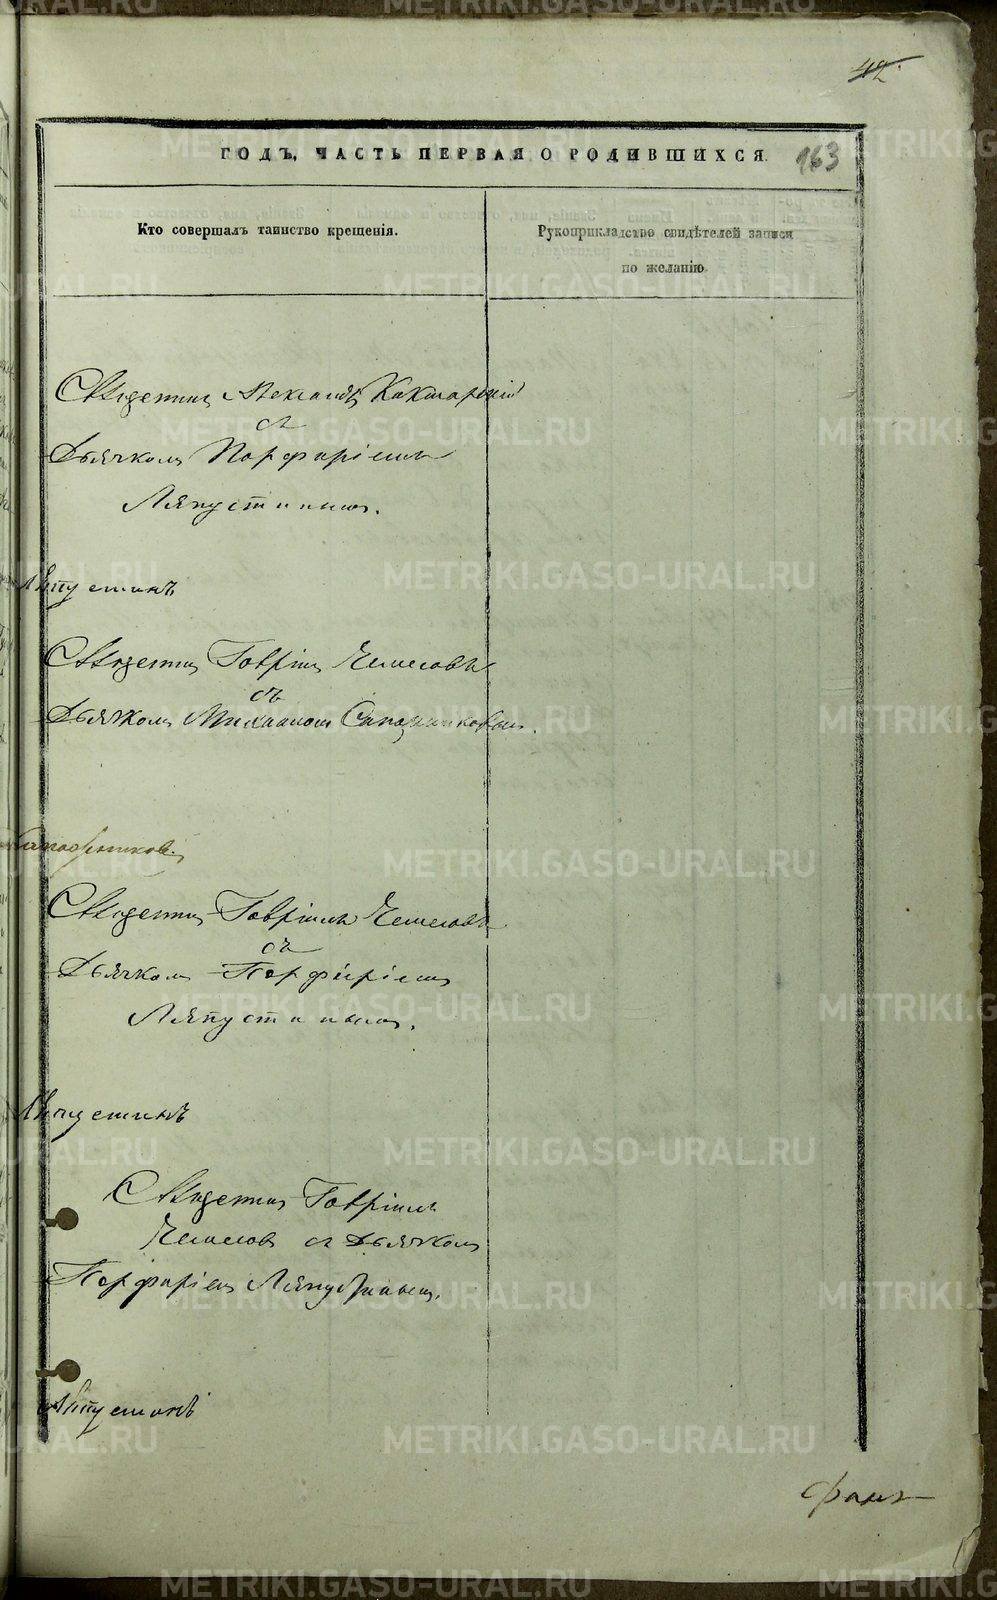 42
ГОДЪ, ЧАСТЬ ПЕРВАЯ, О РОДИВШИХСЯ.
163
Кто совершалъ таинство крещенія.
Рукоприкладство свидѣтелей записи
по желанію
Священникъ Александръ
съ
Дьячкомъ Порфиріемъ
Ляпустинымъ.
Ляпустинъ
Священникъ Гавріилъ
съ
Дьячкомъ Михаиломъ Сапожниковымъ.
Сапожниковъ
Священникъ Гавріилъ
съ
Дьячкомъ Порфиріемъ
Ляпустинымъ.
Ляпустинъ
Священникъ Гавріилъ
съ Дьячкомъ
Порфиріемъ Ляпустинымъ.
Ляпустинъ
METRIKI.GASO-URAL.RU